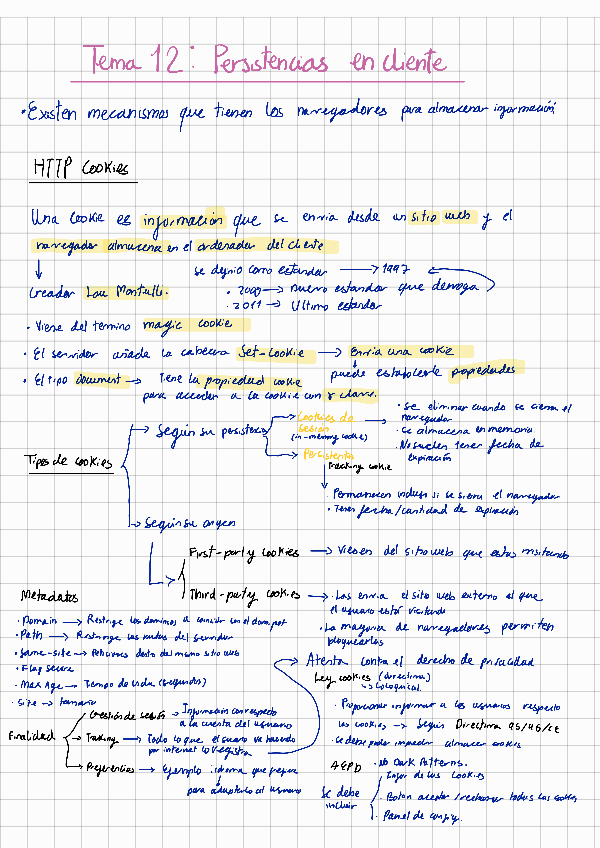 Tema 12: Persistencias en cliente
• Existen mecanismos que tienen los navegadores para almacenar información
HTTP Cookies
Una Cookie es información que se envia desde un sitio web y el
navegador almacena en el ordenador del cliente
Creador Lou Montulli.
se definio como estandar → 1997
• 2000 → nuevo estandar que deroga
• 2011 → Ultimo estandar
• Viene del termino magic cookie
• El servidor añade la cabecera Set-Cookie → Envia una cookie
puede establecerle propiedades
• El tipo Document → Tiene la propiedad cookie
para acceder a la cookie con y clave.
Tipos de cookies
→ Según su persistencia
→ Cookies de
sesión
(in-memory cookies)
→ • Se eliminar cuando se cierra el
navegador
• Se almacena en memoria
• No suelen tener fecha de
expiración
→ Persistente
Tracking cookie
• Permanecen incluso si se cierra el navegador
• Tienen fecha/cantidad de expiración
→ Según su origen
First-party cookies → Vienen del sitio web que estas visitando
Third-party cookies → • Las envia el sitio web externo al que
el usuario está visitando
• La mayoria de navegadores permiten
bloquearlos
Metadatos
• Domain → Restringe los dominios a coincidir con el
• Path → Restringe las rutas del servidor
• Same-site → Peticiones dentro del mismo sitio web
• Flag Secure
• Max Age → Tiempo de vida (segundos)
• Size → tamaño
Finalidad
Gestión de sesión → Información con respecto
a la cuenta del usuario
Tracking → Todo lo que el usuario va haciendo
por internet lo registra
Preferencias → Ejemplo idioma que prefiere
para adaptarlo al usuario
→ Atenta contra el derecho de privacidad
Ley cookies (directiva)
↳ Coloquial
• Proporcionar informar a los usuarios respecto
las cookies → Según Directiva 95/46/CE
• Se debe poder impedir almacenar cookies
AEPD • No Dark Patterns.
Se debe
incluir
de las Cookies
• Boton aceptar/rechazar todas las cookies
• Panel de config.